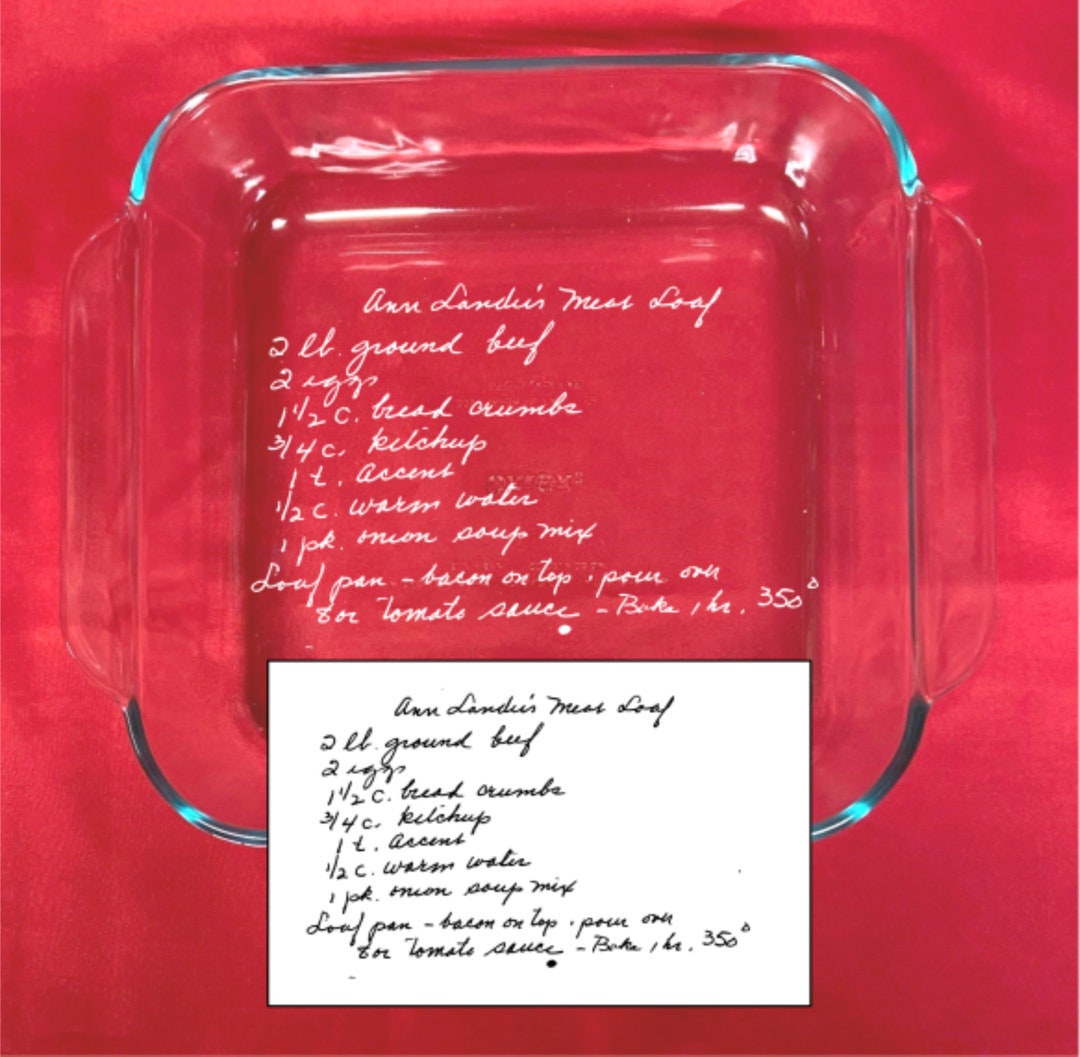 Ann Landers's Meat Loaf
2 lb. ground beef
2 eggs
1 1/2 c. bread crumbs
3/4 c. ketchup
1 t. Accent
1/2 c. warm water
1 pk. onion soup mix
Loaf pan - bacon on top . pour over
8oz Tomato sauce - Bake 1 hr. 350°
PYREX
Ann Landers's Meat Loaf
2 lb. ground beef
2 eggs
1 1/2 c. bread crumbs
3/4 c. ketchup
1 t. Accent
1/2 c. warm water
1 pk. onion soup mix
Loaf pan - bacon on top . pour over
8oz Tomato sauce - Bake 1 hr. 350°